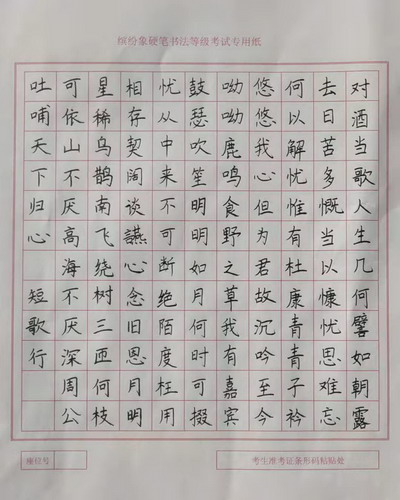 缤纷象硬笔书法等级考试专用纸
对洒当歌人生几何譬如朝露
去日苦多慨当以慷忧思难忘
何以解忧惟有杜康青青子衿
悠悠我心但为君故沉吟至今
呦呦鹿鸣食野之草我有嘉宾
鼓瑟吹笙明明如月何时可掇
忧从中来不可断绝陌度枉用
相存契阔谈讌心念旧恩月明
星稀乌鹊南飞绕树三匝何枝
可依山不厌高海不厌深周公
吐哺天下归心 短歌行
座位号
考生准考证条形码粘贴处